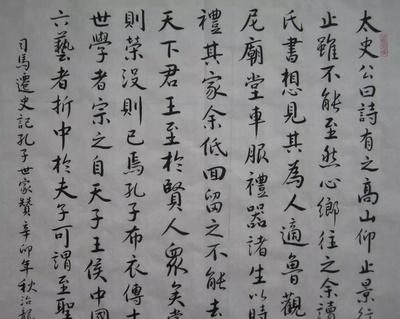 太史公曰詩有之高山仰止景行
止雖不能至然心鄉往之余讀
氏書想見其為人適魯觀
尼廟堂車服禮器諸生以時
禮其家余低回留之不能去
天下君王至於賢人眾矣當
則榮沒則已焉孔子布衣傳十
世學者宗之自天子王侯中國
六藝者折中於夫子可謂至聖
司馬遷史記孔子世家贊辛卯年秋治